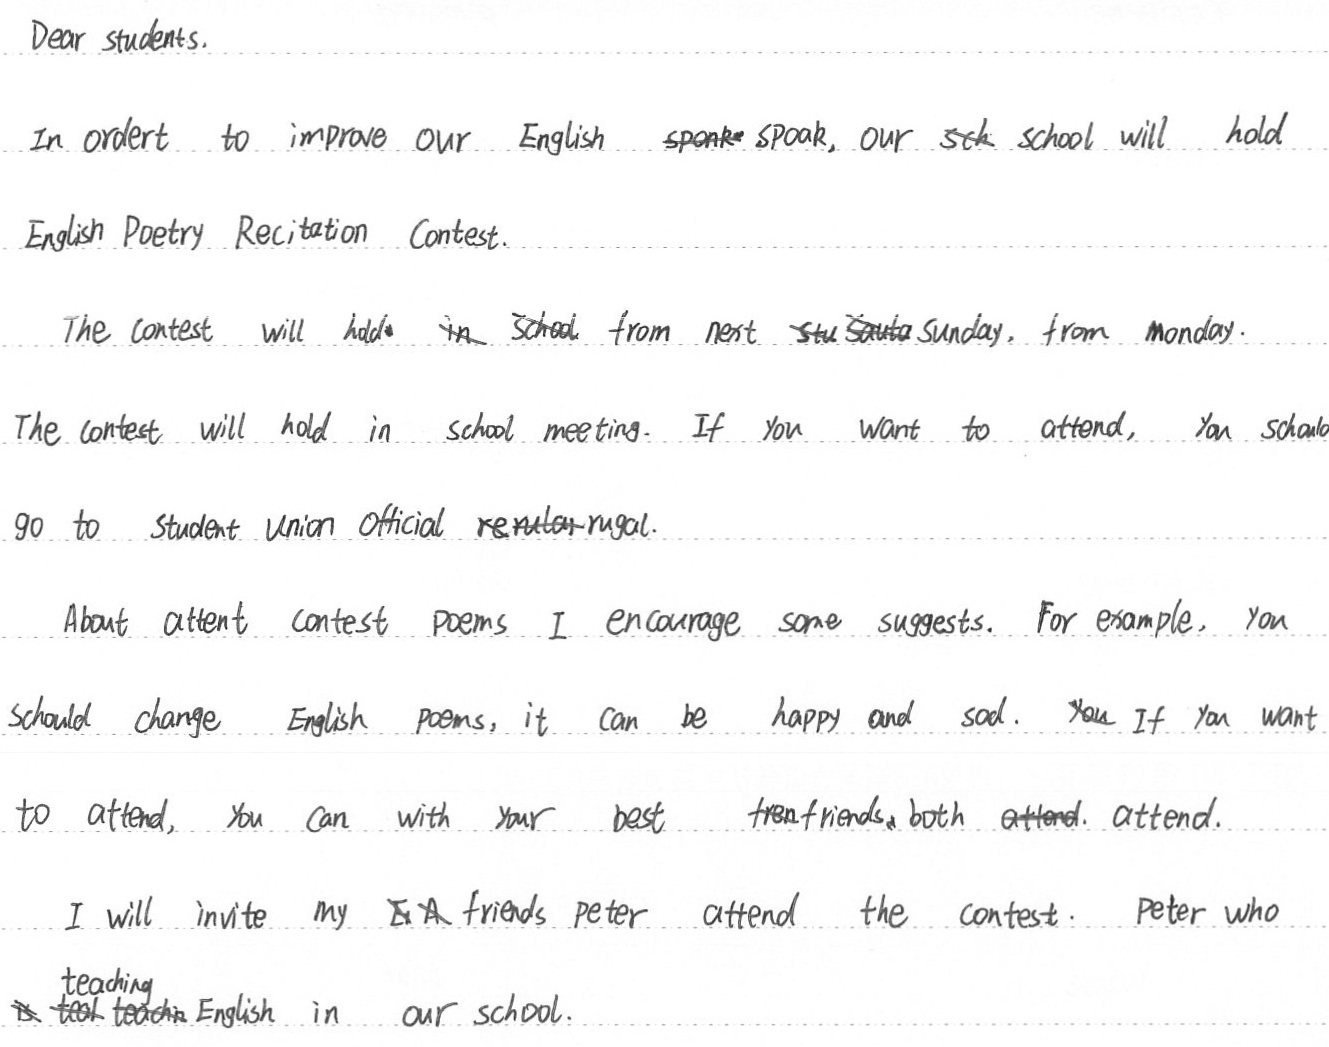 Dear students.
In ordert to improve our English spoak, our school will hold
English Poetry Recitation Contest.
The contest will hold from next Sunday, from monday.
The contest will hold in school meeting. If you want to attend, you schould
go to student union official rugal.
About attent contest poems I encourage some suggests. For example, you
schould change English poems, it can be happy and sad. If you want
to attend, you can with your best friends, both attend.
I will invite my friends peter attend the contest. peter who
teaching
English in our school.